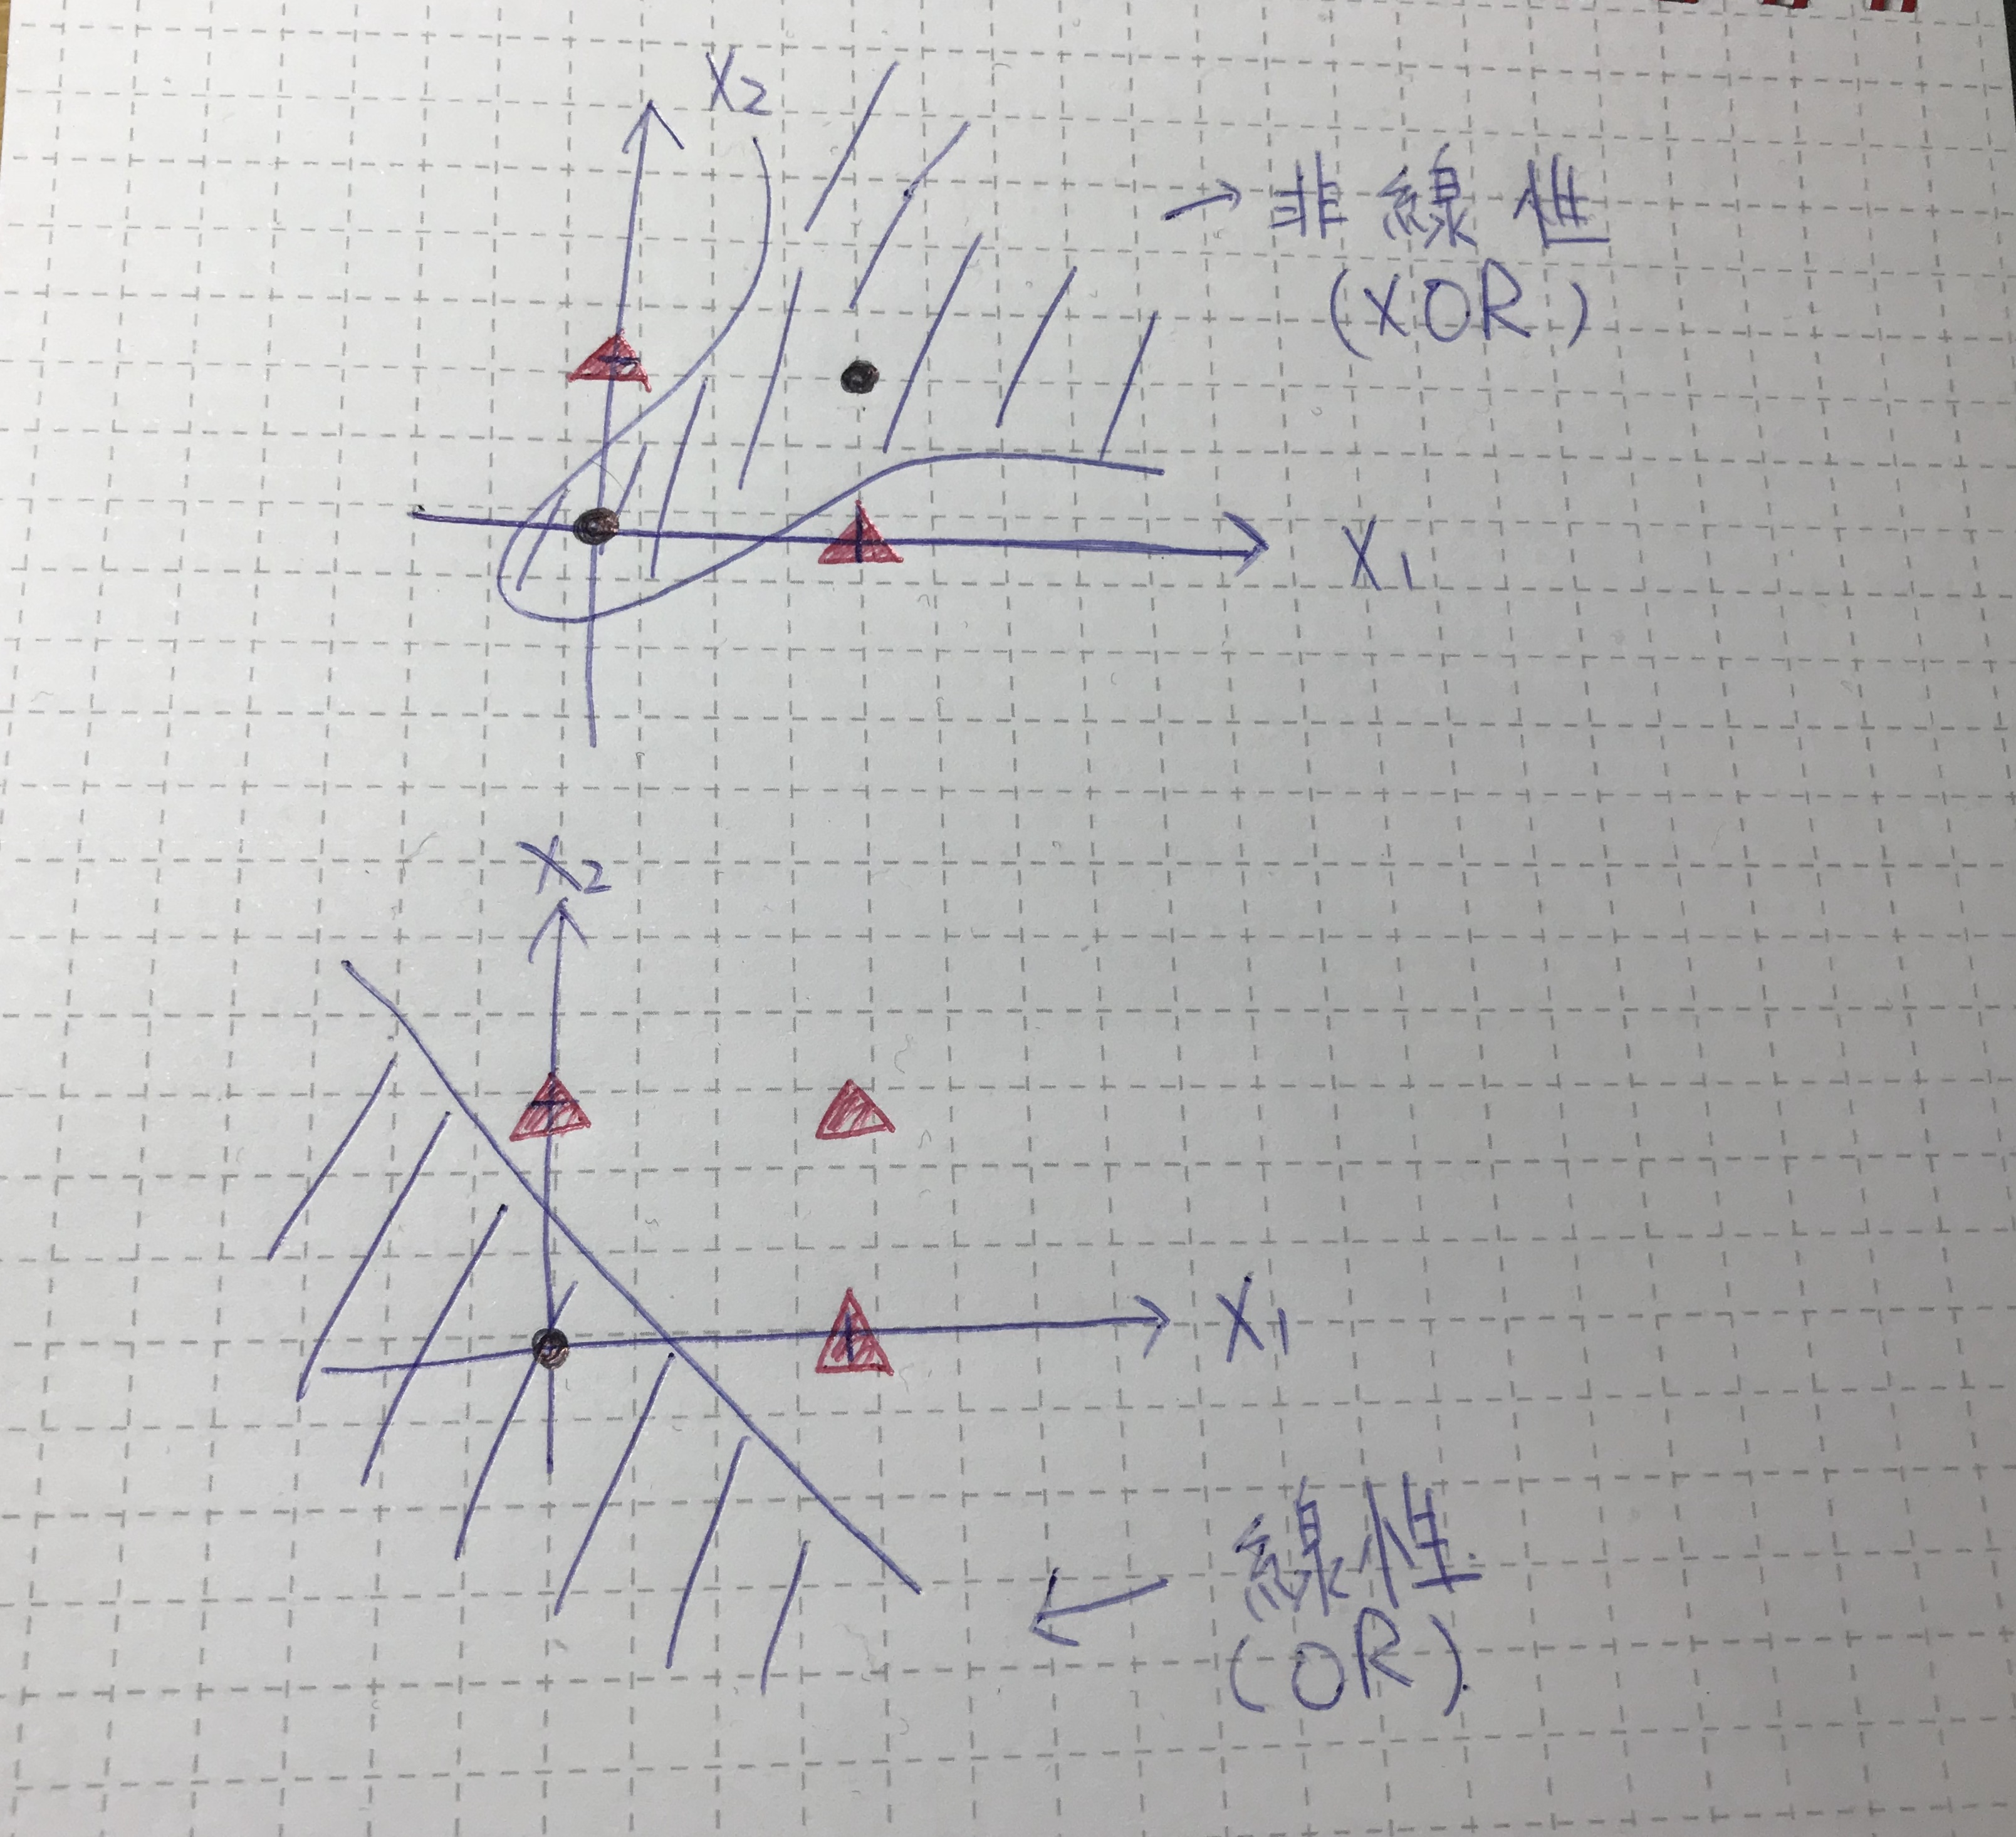 X2
→非線性
(XOR)
X1
X2
X1
←線性
(OR)